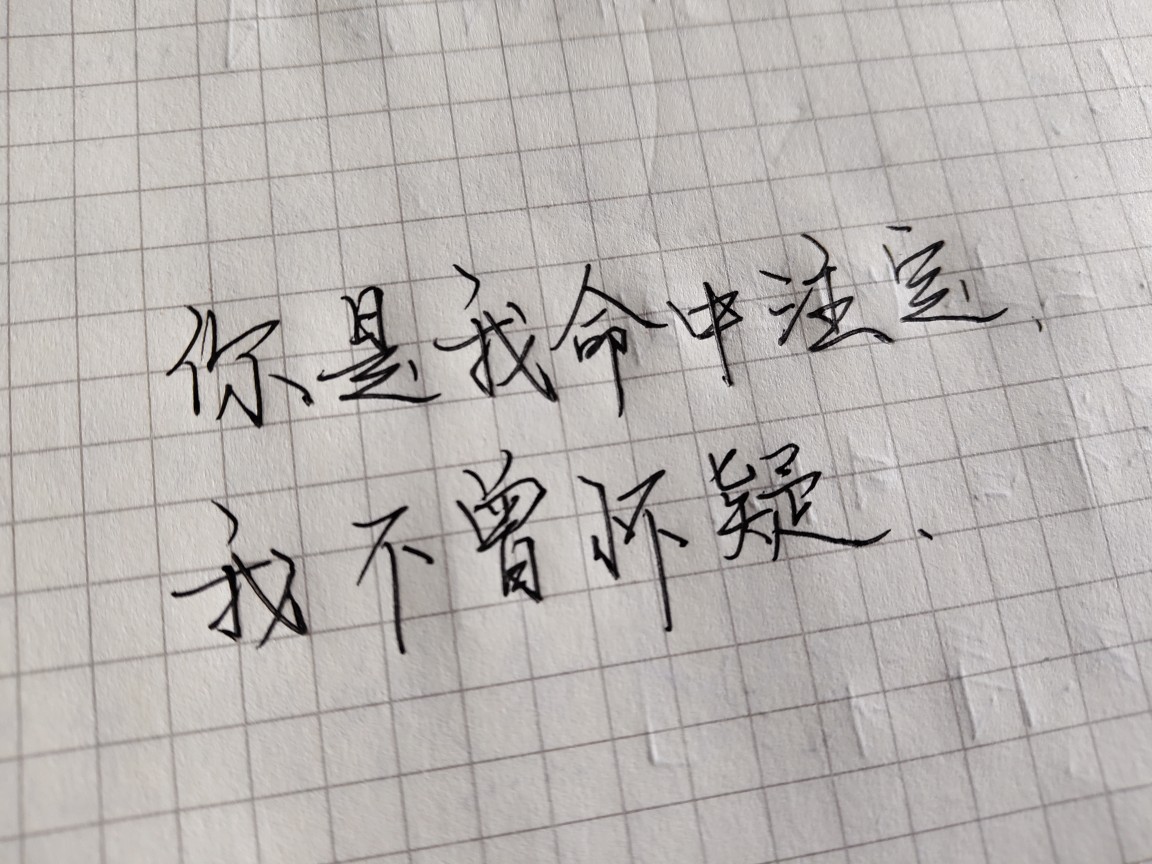 你是我命中注定、
我不曾怀疑、